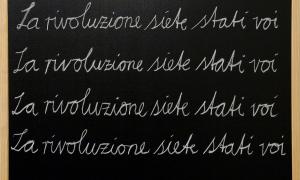 La rivoluzione siete stati voi
La rivoluzione siete stati voi
La rivoluzione siete stati voi
La rivoluzione siete stati voi